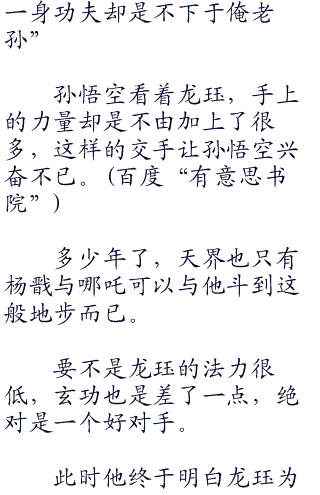 一身功夫却是不下于俺老
孙”
孙悟空看着龙珏，手上
的力量却是不由加上了很
多，这样的交手让孙悟空兴
奋不已。(百度“有意思书
院”)
多少年了，天界也只有
杨戬与哪吒可以与他斗到这
般地步而已。
要不是龙珏的法力很
低，玄功也是差了一点，绝
对是一个好对手。
此时他终于明白龙珏为